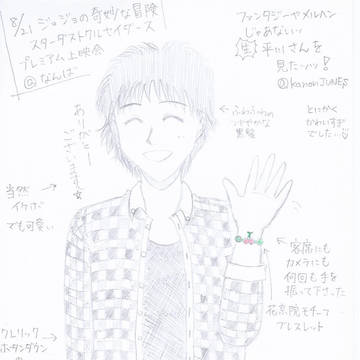 8/21 ジョジョの奇妙な冒険
スターダストクルセイダース
プレミアム上映会
@なんば
ファンタジーやメルヘン
じゃあないぃ
生 平川さんを
見たーッ!
@kanonJUNE5
ありがとー
ございまーす☆
ふわっふわの
つややかな
黒髪
とにかく
かわいすぎ
でした…
当然
イケボ
でも可愛い
客席にも
カメラにも
何回も手を
振って下さった
花京院モチーフ
ブレスレット
クレリック
ボタンダウン